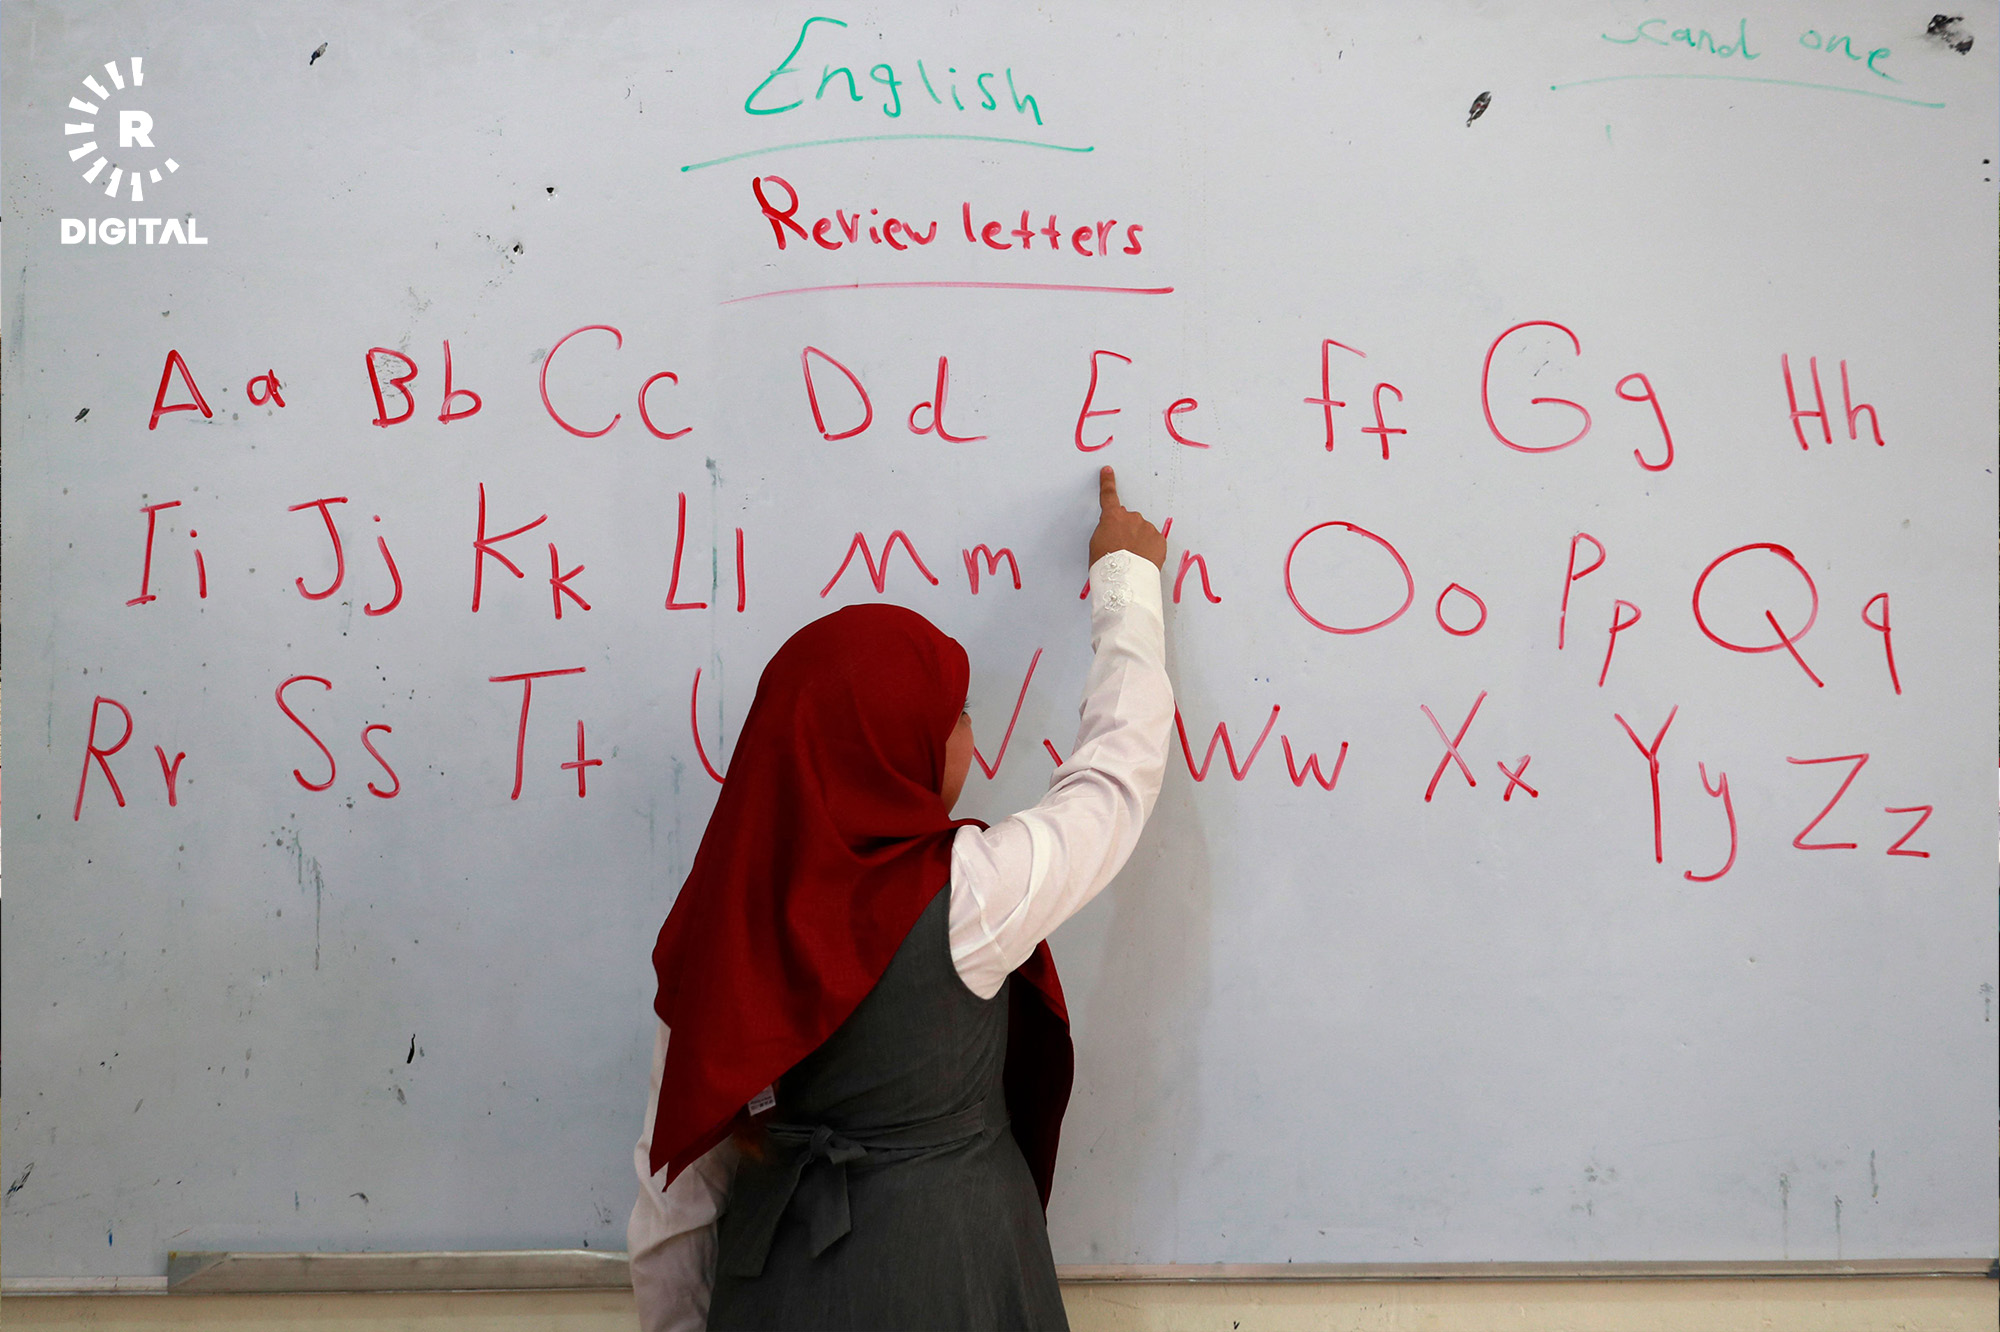 R
DIGITAL
English
Review letters
A a Bb Cc D d E e Ff Gg Hh
Ii Jj Kk Ll M m n Oo Pp Qq
Rr Ss Tt V Ww Xx Yy Zz
one